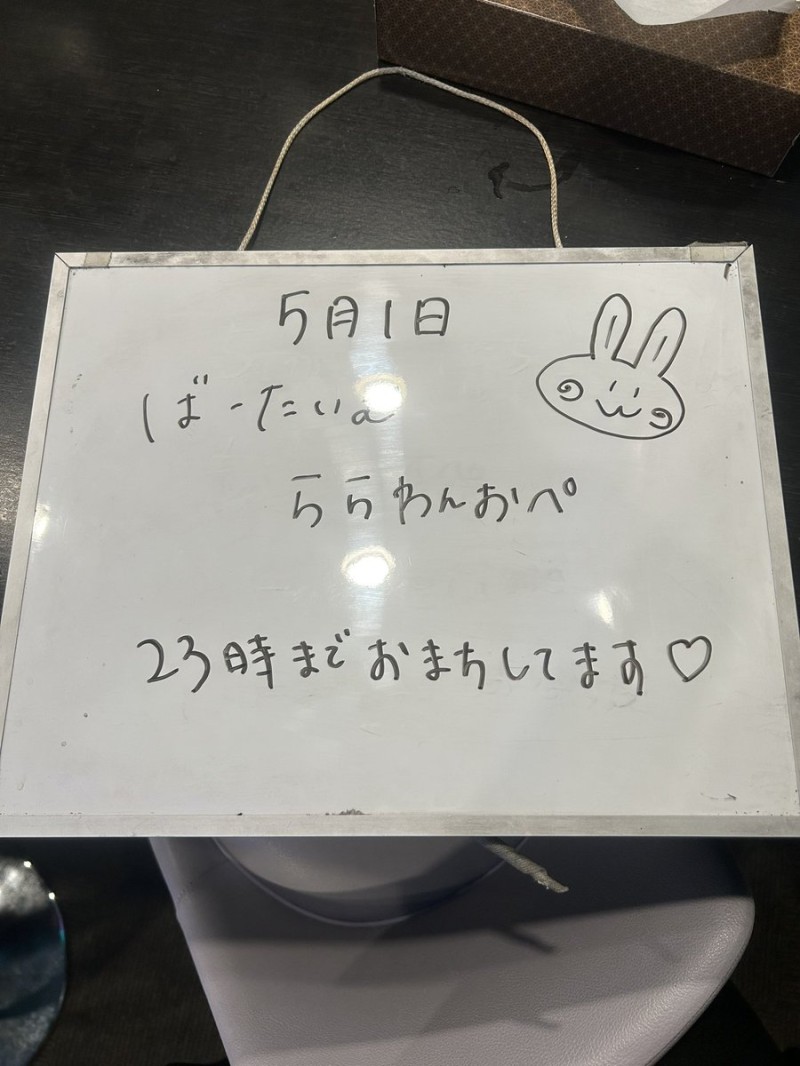 5月1日
ばーたいむ
ららわんおぺ
23時までおまちしてます♡